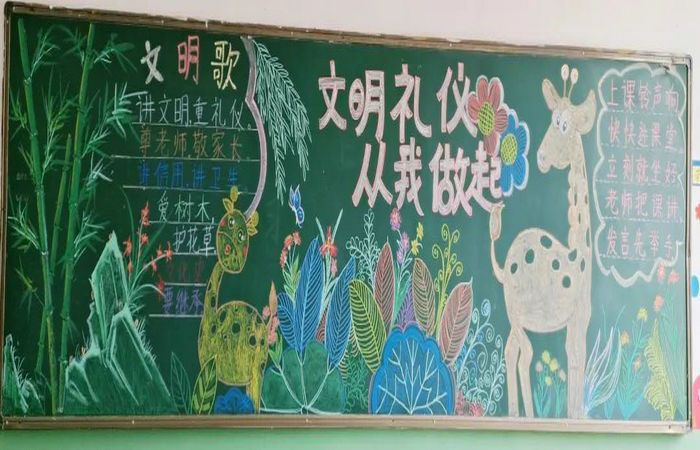 文明歌
讲文明,重礼仪。
尊老师,敬家长
讲信用,讲卫生
爱树木
护花草
要继承
文明礼仪
从我做起
上课铃声响
快快进课堂
立刻就坐好
老师把课讲
发言先举手